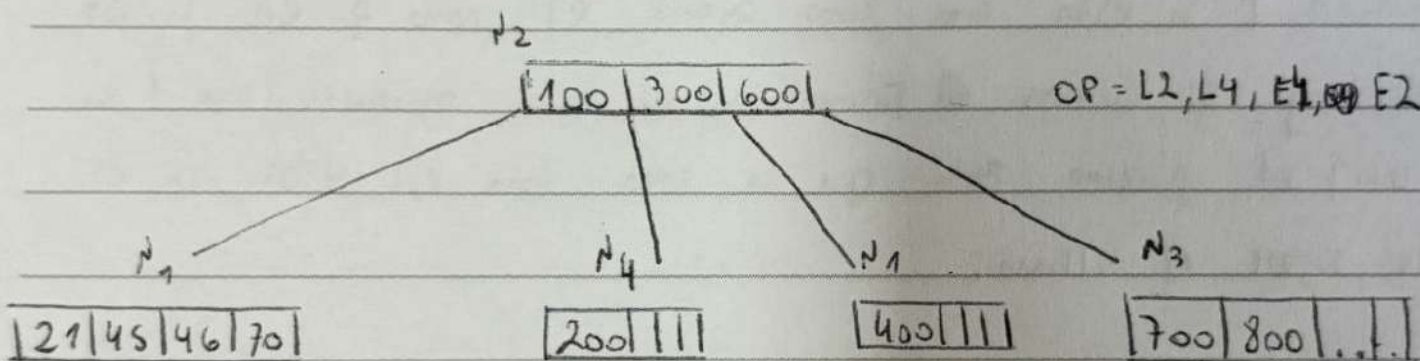 N2
|100|300|600| OP = L2, L4, E4, E2
N1 N4 N1 N3
|21|45|46|70| |200||| |400||| |700|800|..|.|